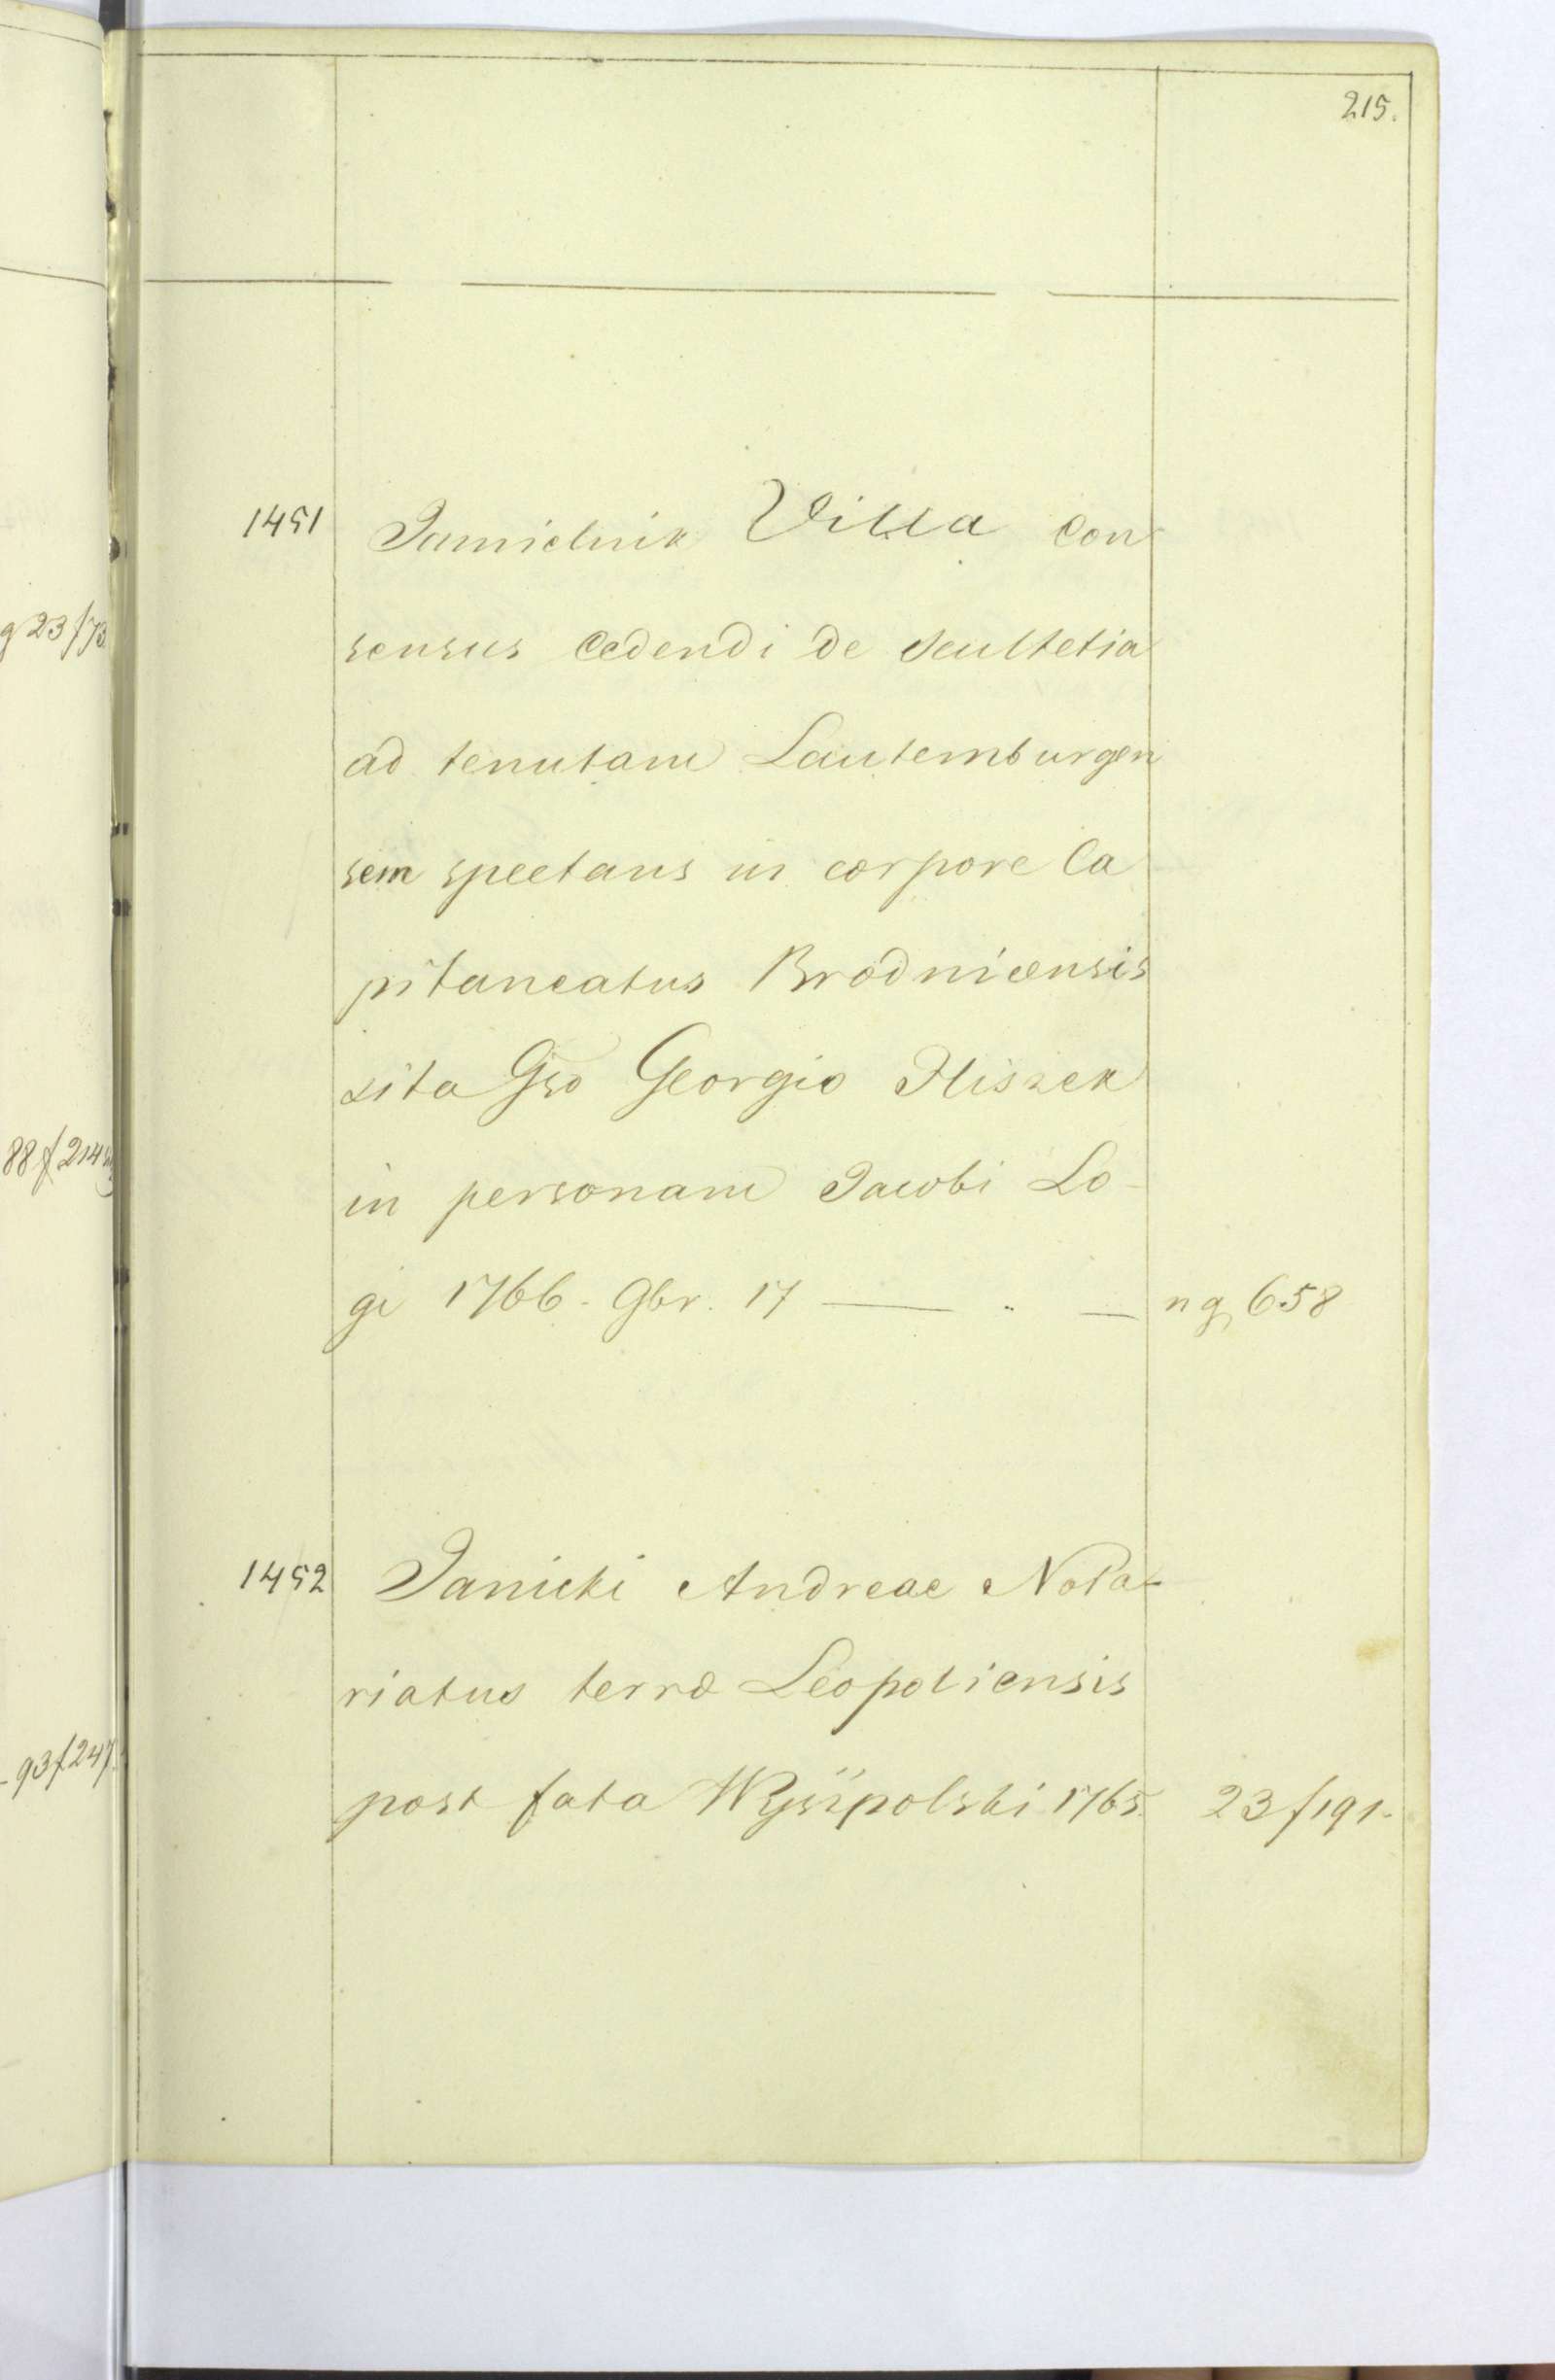 215.
1451 Jamielnik Villa Con
sensus cedendi de Scultetia
ad tenutam Lautemburgen
sem spectans in corpore Ca
pitaneatus Brodnicensis
sita Gso Georgio Hiszek
in personam Jacobi Lo-
gi 1766. 9br. 17 — " — ng 658
1452 Janicki Andreae Nota-
riatus terræ Leopoliensis
post fata Wysipolski 1765. 23 f 191.
g 23 f 73
88 f 214
- 93 f 247.